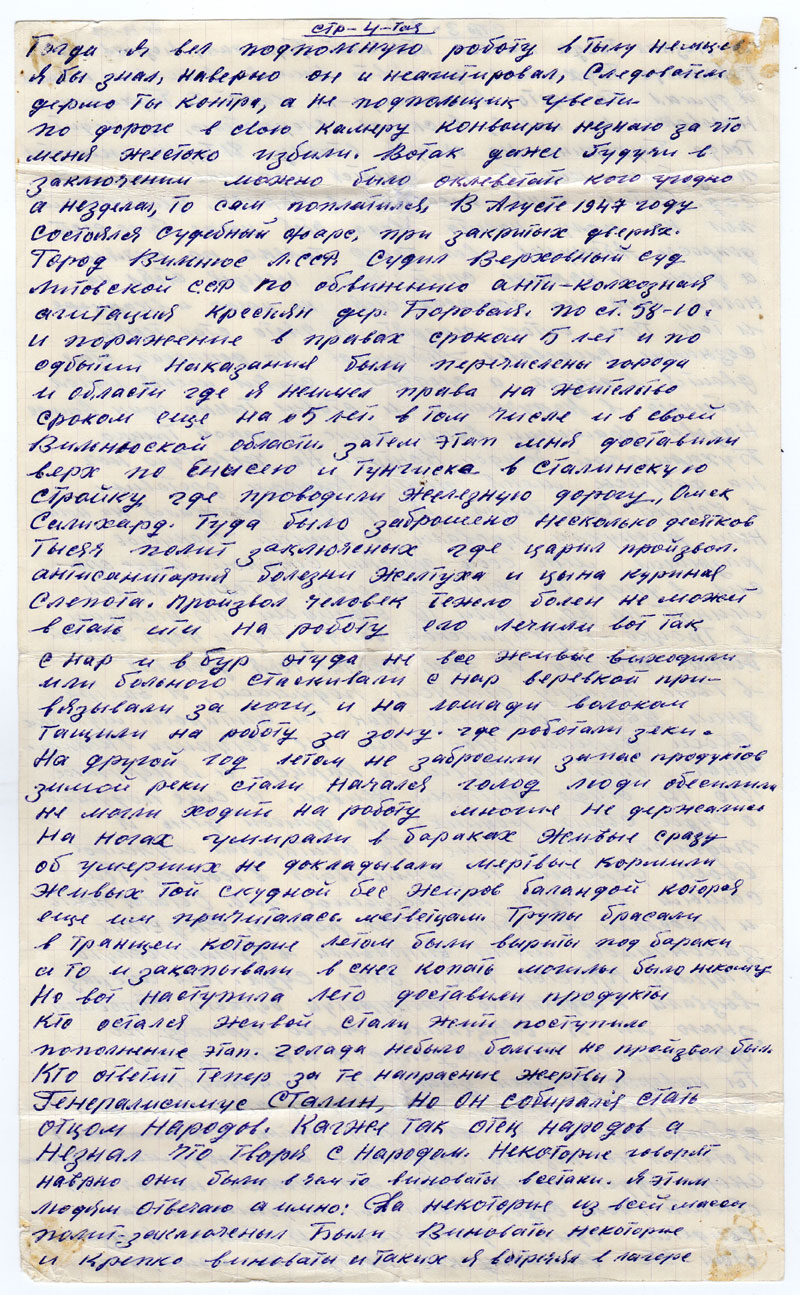 стр-4-тая
Тогда я вел подпольную роботу в тылу немцев
я бы знал, наверно он и неагитировал, Следователь
дермо ты контра, а не подпольщик увести-
по дороге в свою камеру конвоиры незнаю за что
меня жестоко избили. Вотак даже будучи в
заключении можно было оклеветать кого угодно
а незделал, то сам поплатился, В Августе 1947 году
состоялся судебный фарс, при закрытых дверях.
Город Вильнюс Л.ССР. Судил Верховный суд
Литовской ССР по обвинению анти-колхозная
агитация крестьян дер. Боровая. по ст. 58-10.
и поражение в правах сроком 5 лет и по
одбытии Наказания были перечислены города
и области где я неимел права на жительство
сроком еще на 5 лет. в том числе и в своей
Вильнюской области. затем этап меня доставили
верх по Енисею и Тунгиска в Сталинскую
стройку где проводили железную дорогу, Омск
Салихард. Туда было заброшено несколько десятков
тысяч полит заключеных где царил пройзвол.
антисанитария болезни желтуха и цына куриная
слепота. пройзвол человек тежело болен не может
встать ити на роботу его лечили вот так
с нар и в бур отуда не все живые выходили
или больного стаскивали с нар веревкой при-
вязывали за ноги, и на лошади волоком
тащили на роботу за зону. где роботали зеки.
На другой год летом не забросили запас продуктов
зимой реки стали начался голод люди обесилили
не могли ходить на роботу многие не держались
на ногах умирали в бараках живые сразу
об умерших не докладывали мертвые кормили
живых той скудной бес жиров баландой которая
еще им причиталась метвецам. Трупы брасали
в траншеи которые летом были вырыты под бараки
а то и закапывали в снег копать могилы было некому
Но вот наступила лето доставили продукты
кто остался живой стали жить поступило
пополнение этап. голада небыло больше но пройзвол был.
Кто ответит тепер за те напрасные жертвы?
Генералисимус Сталин, но он собирался стать
отцом Народов. Кагже так отец народов а
Незнал что творя с народом. Некоторые говорят
наврно они были в чем то виноваты всетаки. я этим
людям отвечаю аимно: Да некоторые из всей массы
полит-заключеных были виноваты некоторые
и крепко виноваты и таких я встречял в лагере